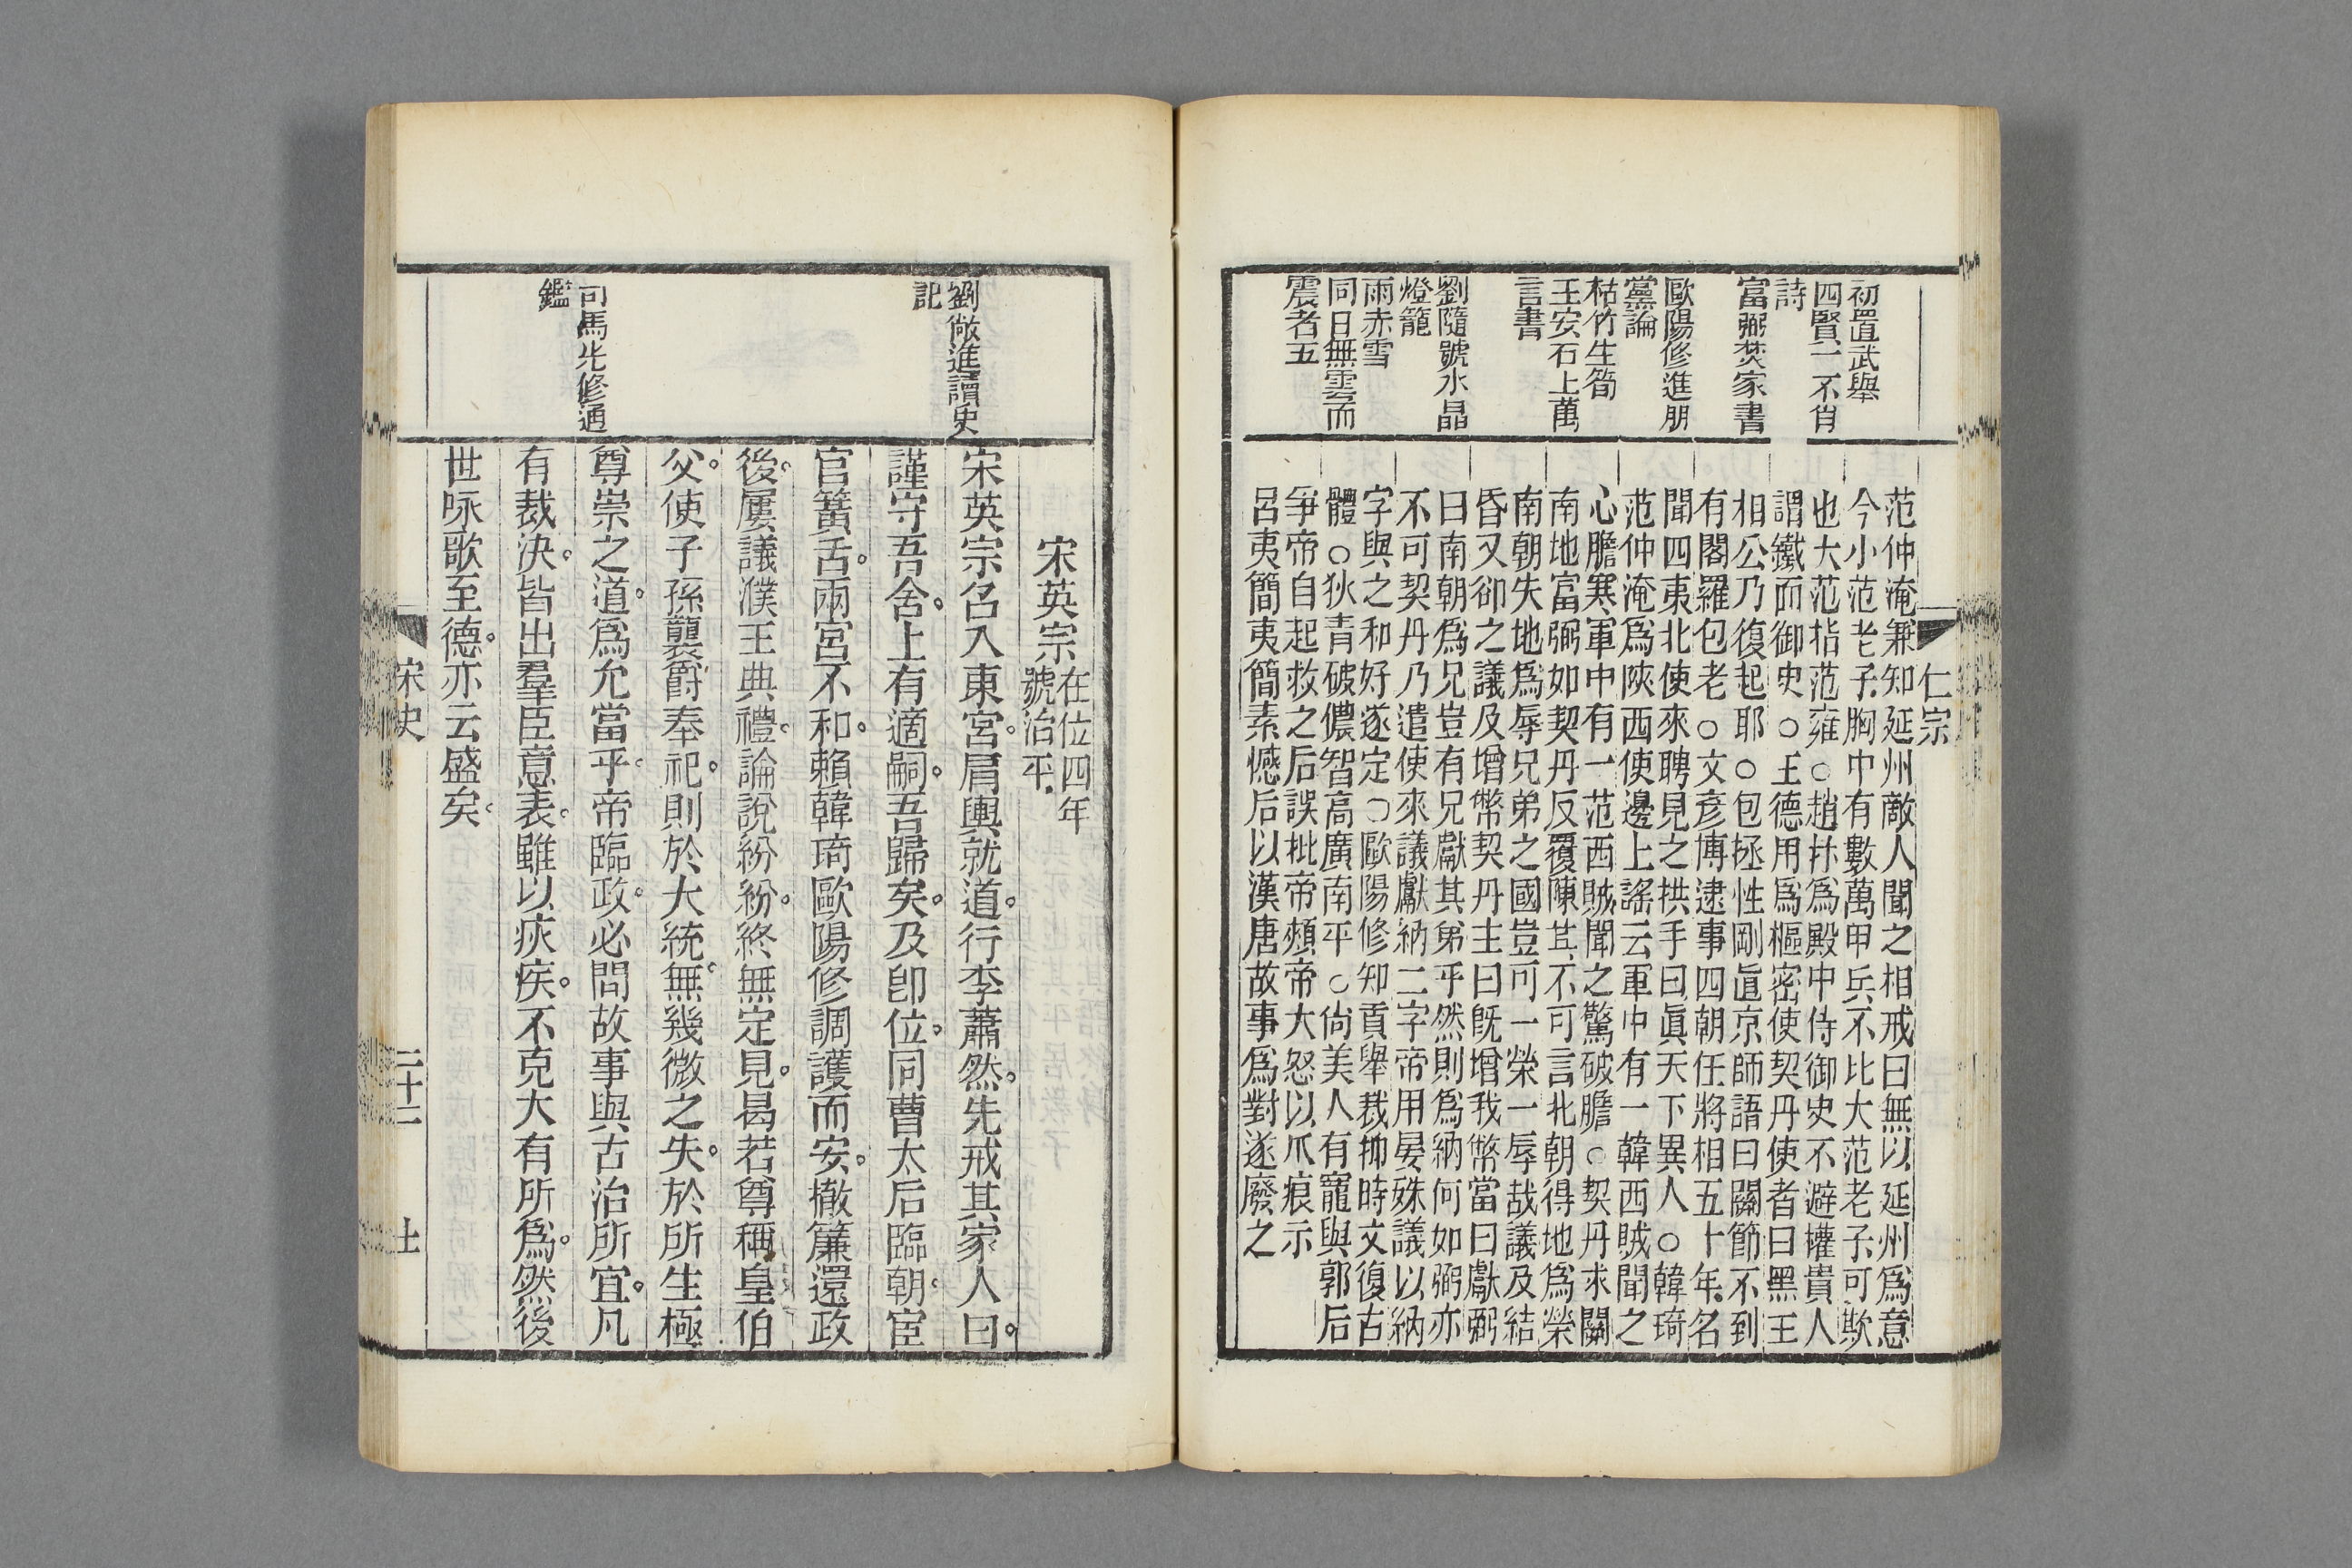 仁宗
初置武舉
四賢一不肖
詩
富弼焚家書
歐陽修進朋
黨論
枯竹生筍
王安石上萬
言書
劉隨號水晶
燈籠
雨赤雪
同日無雲而
震者五
范仲淹兼知延州敵人聞之相戒曰無以延州爲意
今小范老子胸中有數萬甲兵不比大范老子可欺
也大范指范雍○趙抃爲殿中侍御史不避權貴人
謂鐵面御史○王德用爲樞密使契丹使者曰黑王
相公乃復起耶○包拯性剛眞京師語曰關節不到
有閻羅包老○文彥博逮事四朝任將相五十年名
聞四夷北使來聘見之拱手曰眞天下異人○韓琦
范仲淹爲陝西使邊上謠云軍中有一韓西賊聞之
心膽寒軍中有一范西賊聞之驚破膽○契丹求關
南地富弼如契丹反覆陳其不可言北朝得地爲榮
南朝失地爲辱兄弟之國豈可一榮一辱哉議及結
昏又卻之議及增幣契丹主曰旣增我幣當曰獻弼
曰南朝爲兄豈有兄獻其弟乎然則爲納何如弼亦
不可契丹乃遣使來議獻納二字帝用晏殊議以納
字與之和好遂定○歐陽修知貢舉裁抑時文復古
體○狄青破儂智高廣南平○尙美人有寵與郭后
爭帝自起救之后誤批帝頰帝大怒以爪痕示
呂夷簡夷簡素憾后以漢唐故事爲對遂廢之
劉敞進讀史
記
司馬光修通
鑑
宋英宗在位四年
號治平
宋英宗召入東宮。肩輿就道。行李蕭然。先戒其家人曰。
謹守吾舍。上有適嗣。吾歸矣。及卽位。同曹太后臨朝。宦
官簧舌。兩宮不和。賴韓琦歐陽修調護而安。撤簾還政
後。屢議濮王典禮。論說紛紛。終無定見。曷若尊稱皇伯
父。使子孫襲爵奉祀。則於大統。無幾微之失。於所生極
尊崇之道。爲允當乎。帝臨政。必問故事與古治所宜。凡
有裁決。皆出羣臣意表。雖以疾疾。不克大有所爲。然後
世咏歌至德。亦云盛矣。
宋史
二十二